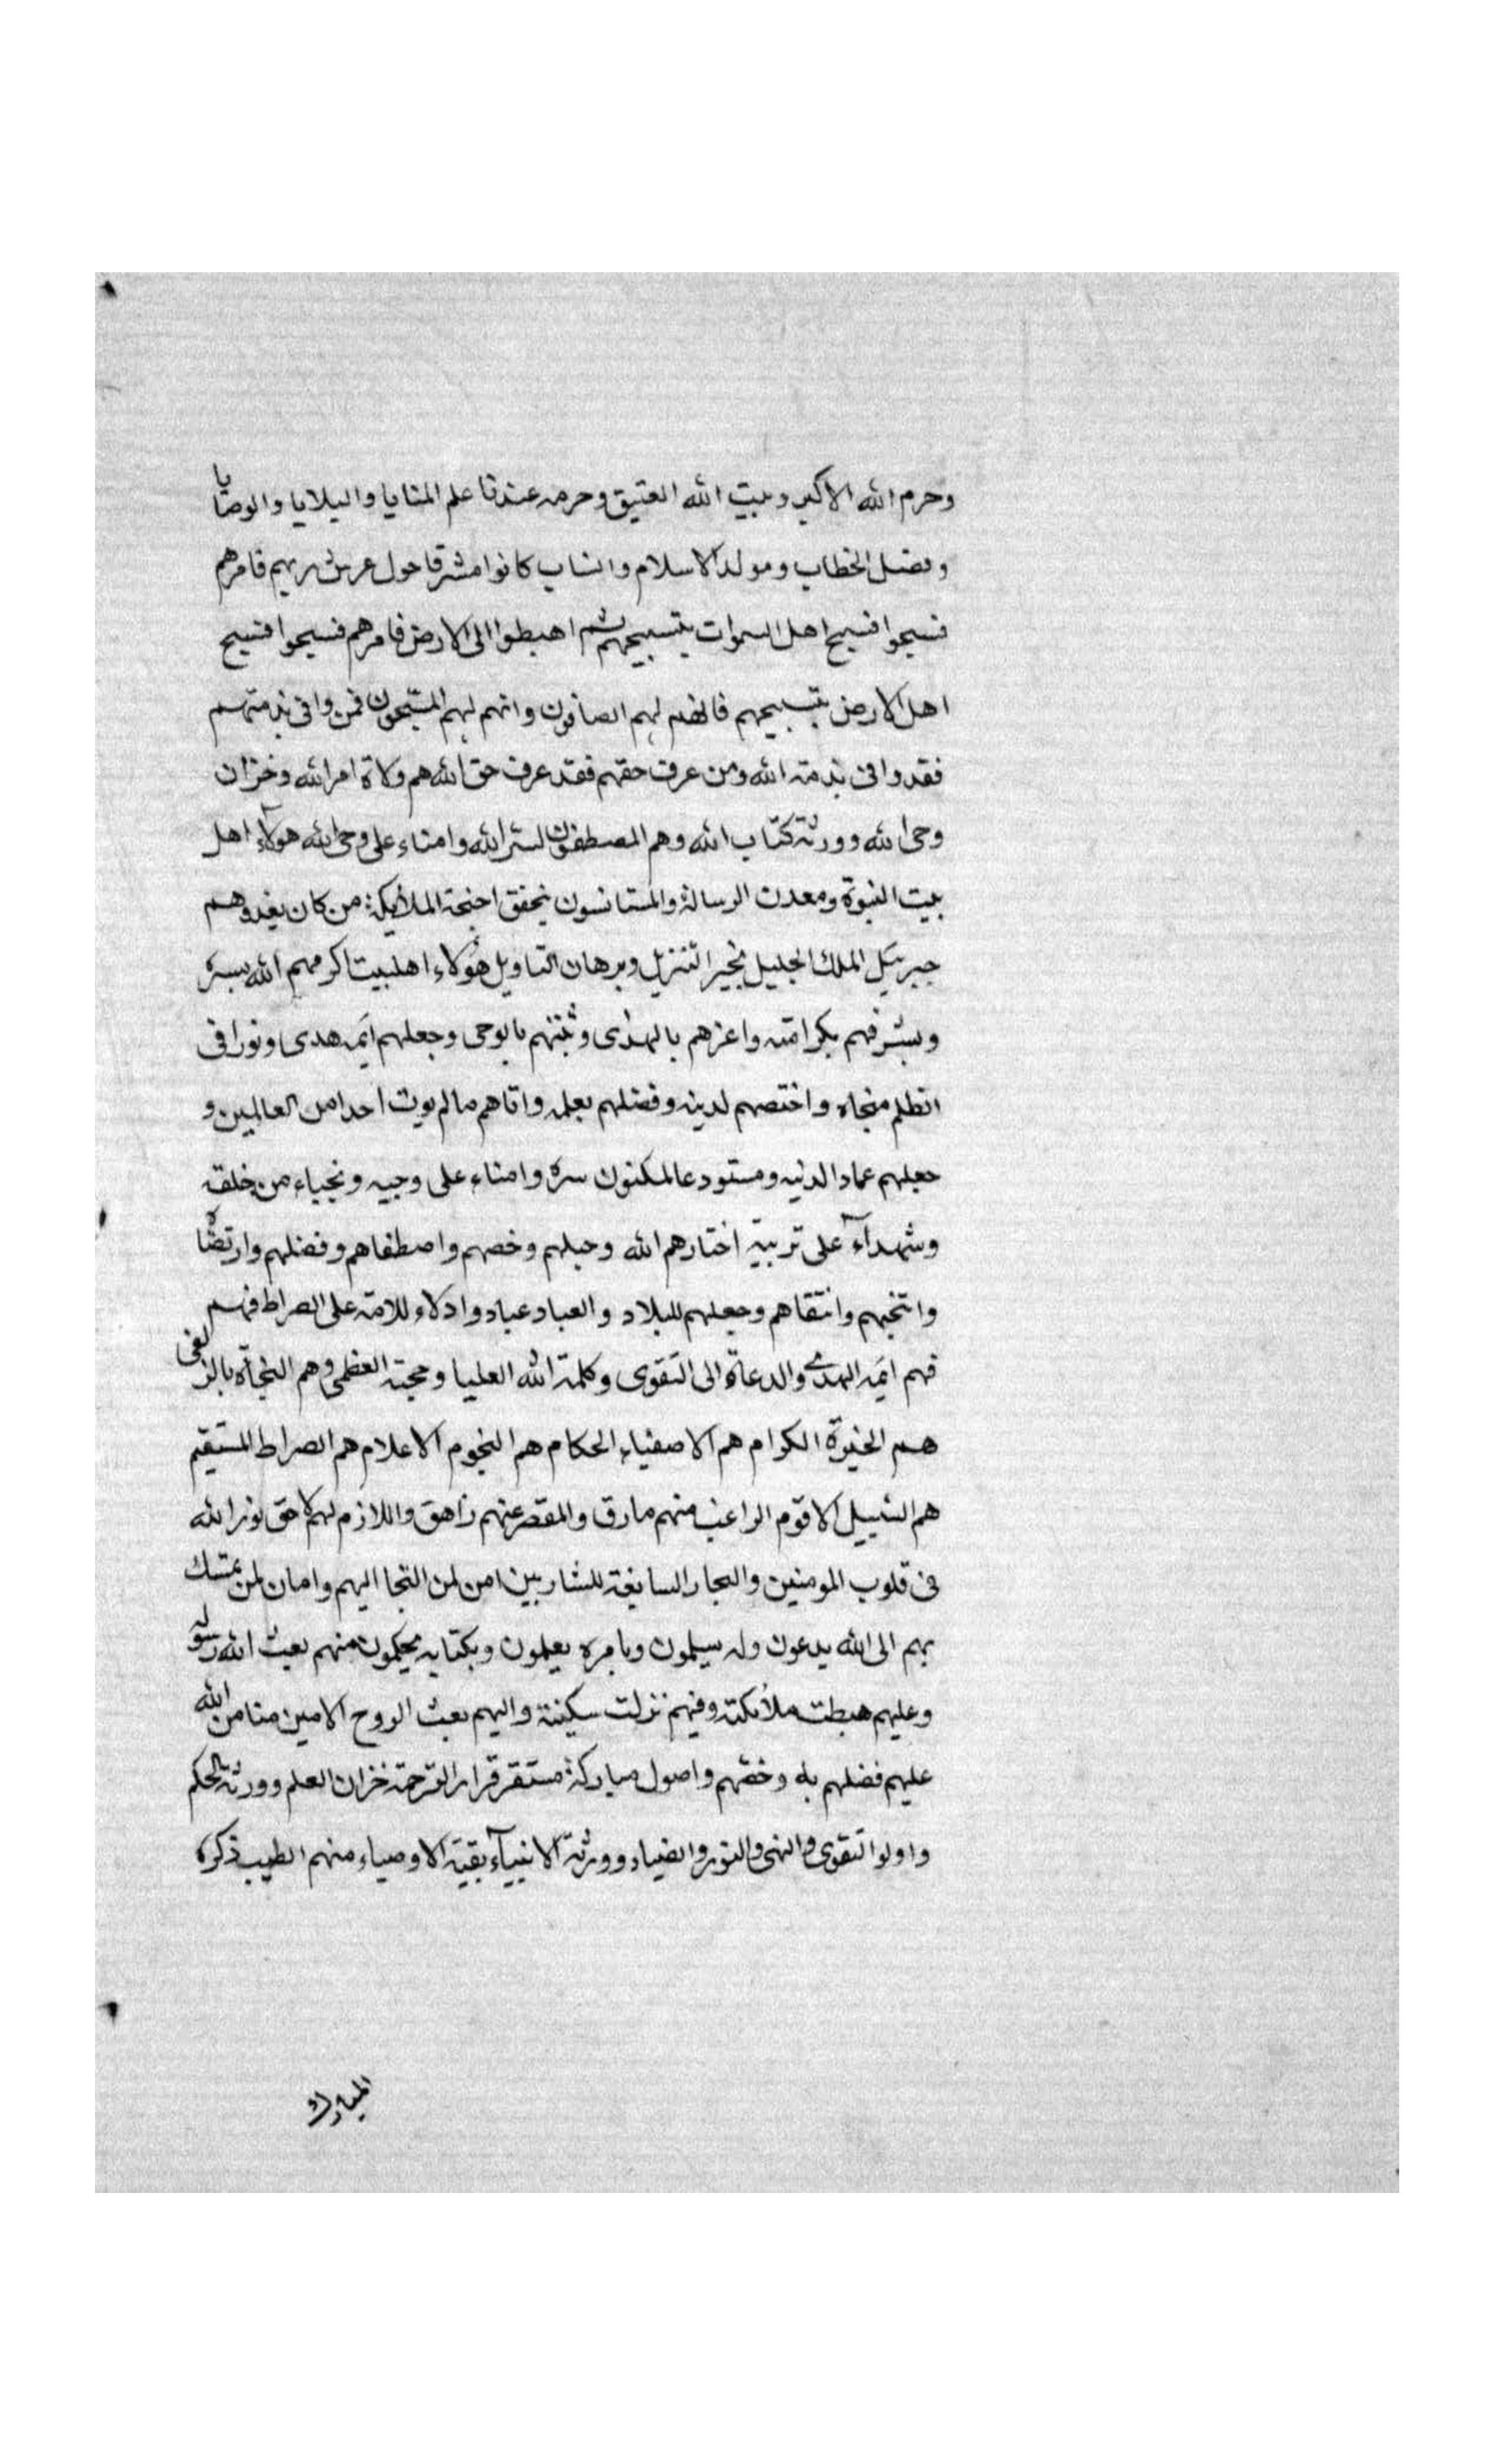 وحرم الله الاكبر وبيت الله العتيق وحرمه عندنا علم المنايا والبلايا والوصايا
وفصل الخطاب ومولد الاسلام وانساب كانوا مشرقا حول عرش ربهم فامرهم
فسبحوا فسبح اهل السموات بتسبيحهم ثم اهبطوا الى الارض فامرهم فسبحوا فسبح
اهل الارض بتسبيحهم فانهم لهم الصافون وانهم لهم المسبحون فمن وافى بذمتهم
فقد وافى بذمة الله ومن عرف حقهم فقد عرف حق الله هم ولاة امر الله وخزان
وحى الله وورثة كتاب الله وهم المصطفون لسر الله وامناء على وحى الله هولاء اهل
بيت النبوة ومعدن الرسالة والمستانسون بخفق اجنحة الملائكة من كان يغدوهم
جبرئيل الملك الجليل بخبر التنزيل وبرهان التاويل هؤلاء اهلبيت اكرمهم الله بسره
وشرفهم بكرامته واعزهم بالهدى وثبتهم بالوحى وجعلهم ائمه هدى ونورا فى
الظلم منجاه واختصهم لدينه وفضلهم بعلمه واتاهم ما لم يوت احدا من العالمين و
جعلهم عماد الدينه ومستودعا لمكنون سره وامناء على وحيه ونجباء من خلقه
وشهدآء على تربيته اختارهم الله وحبلهم وخصهم واصطفاهم وفضلهم وارتضاه
وانتجبهم وانتقاهم وجعلهم للبلاد والعباد عباد وادلاء للامة على الصراط فهم
فهم ائمه الهدى والدعاة الى التقوى وكلمة الله العليا وحجته العظمى وهم النجاة بالزلفى
هم الخيرة الكرام هم الاصفياء الحكام هم النجوم الاعلام هم الصراط المستقيم
هم السبيل الاقوم الراغب منهم مارق والمقصر عنهم زاهق واللازم لهم لاحق نور الله
فى قلوب المومنين والبحار السايغة للشاربين امن لمن التجا اليهم وامان لمن تمسك
بهم الى الله يدعون وله يسلمون وبامره يعلمون وبكتابه يحكمون منهم بعث الله رسوله
وعليهم هبطت ملائكته وفيهم نزلت سكينة واليهم بعث الروح الامين منا من الله
عليهم فضلهم به وخصهم واصول مباركة مستقر قرار الرحمة خزان العلم وورثة الحكم
واولوا التقوى والنهى والنور والضياء وورثة الانبيآء بقية الاوصياء منهم الطيب ذكره
المبارك